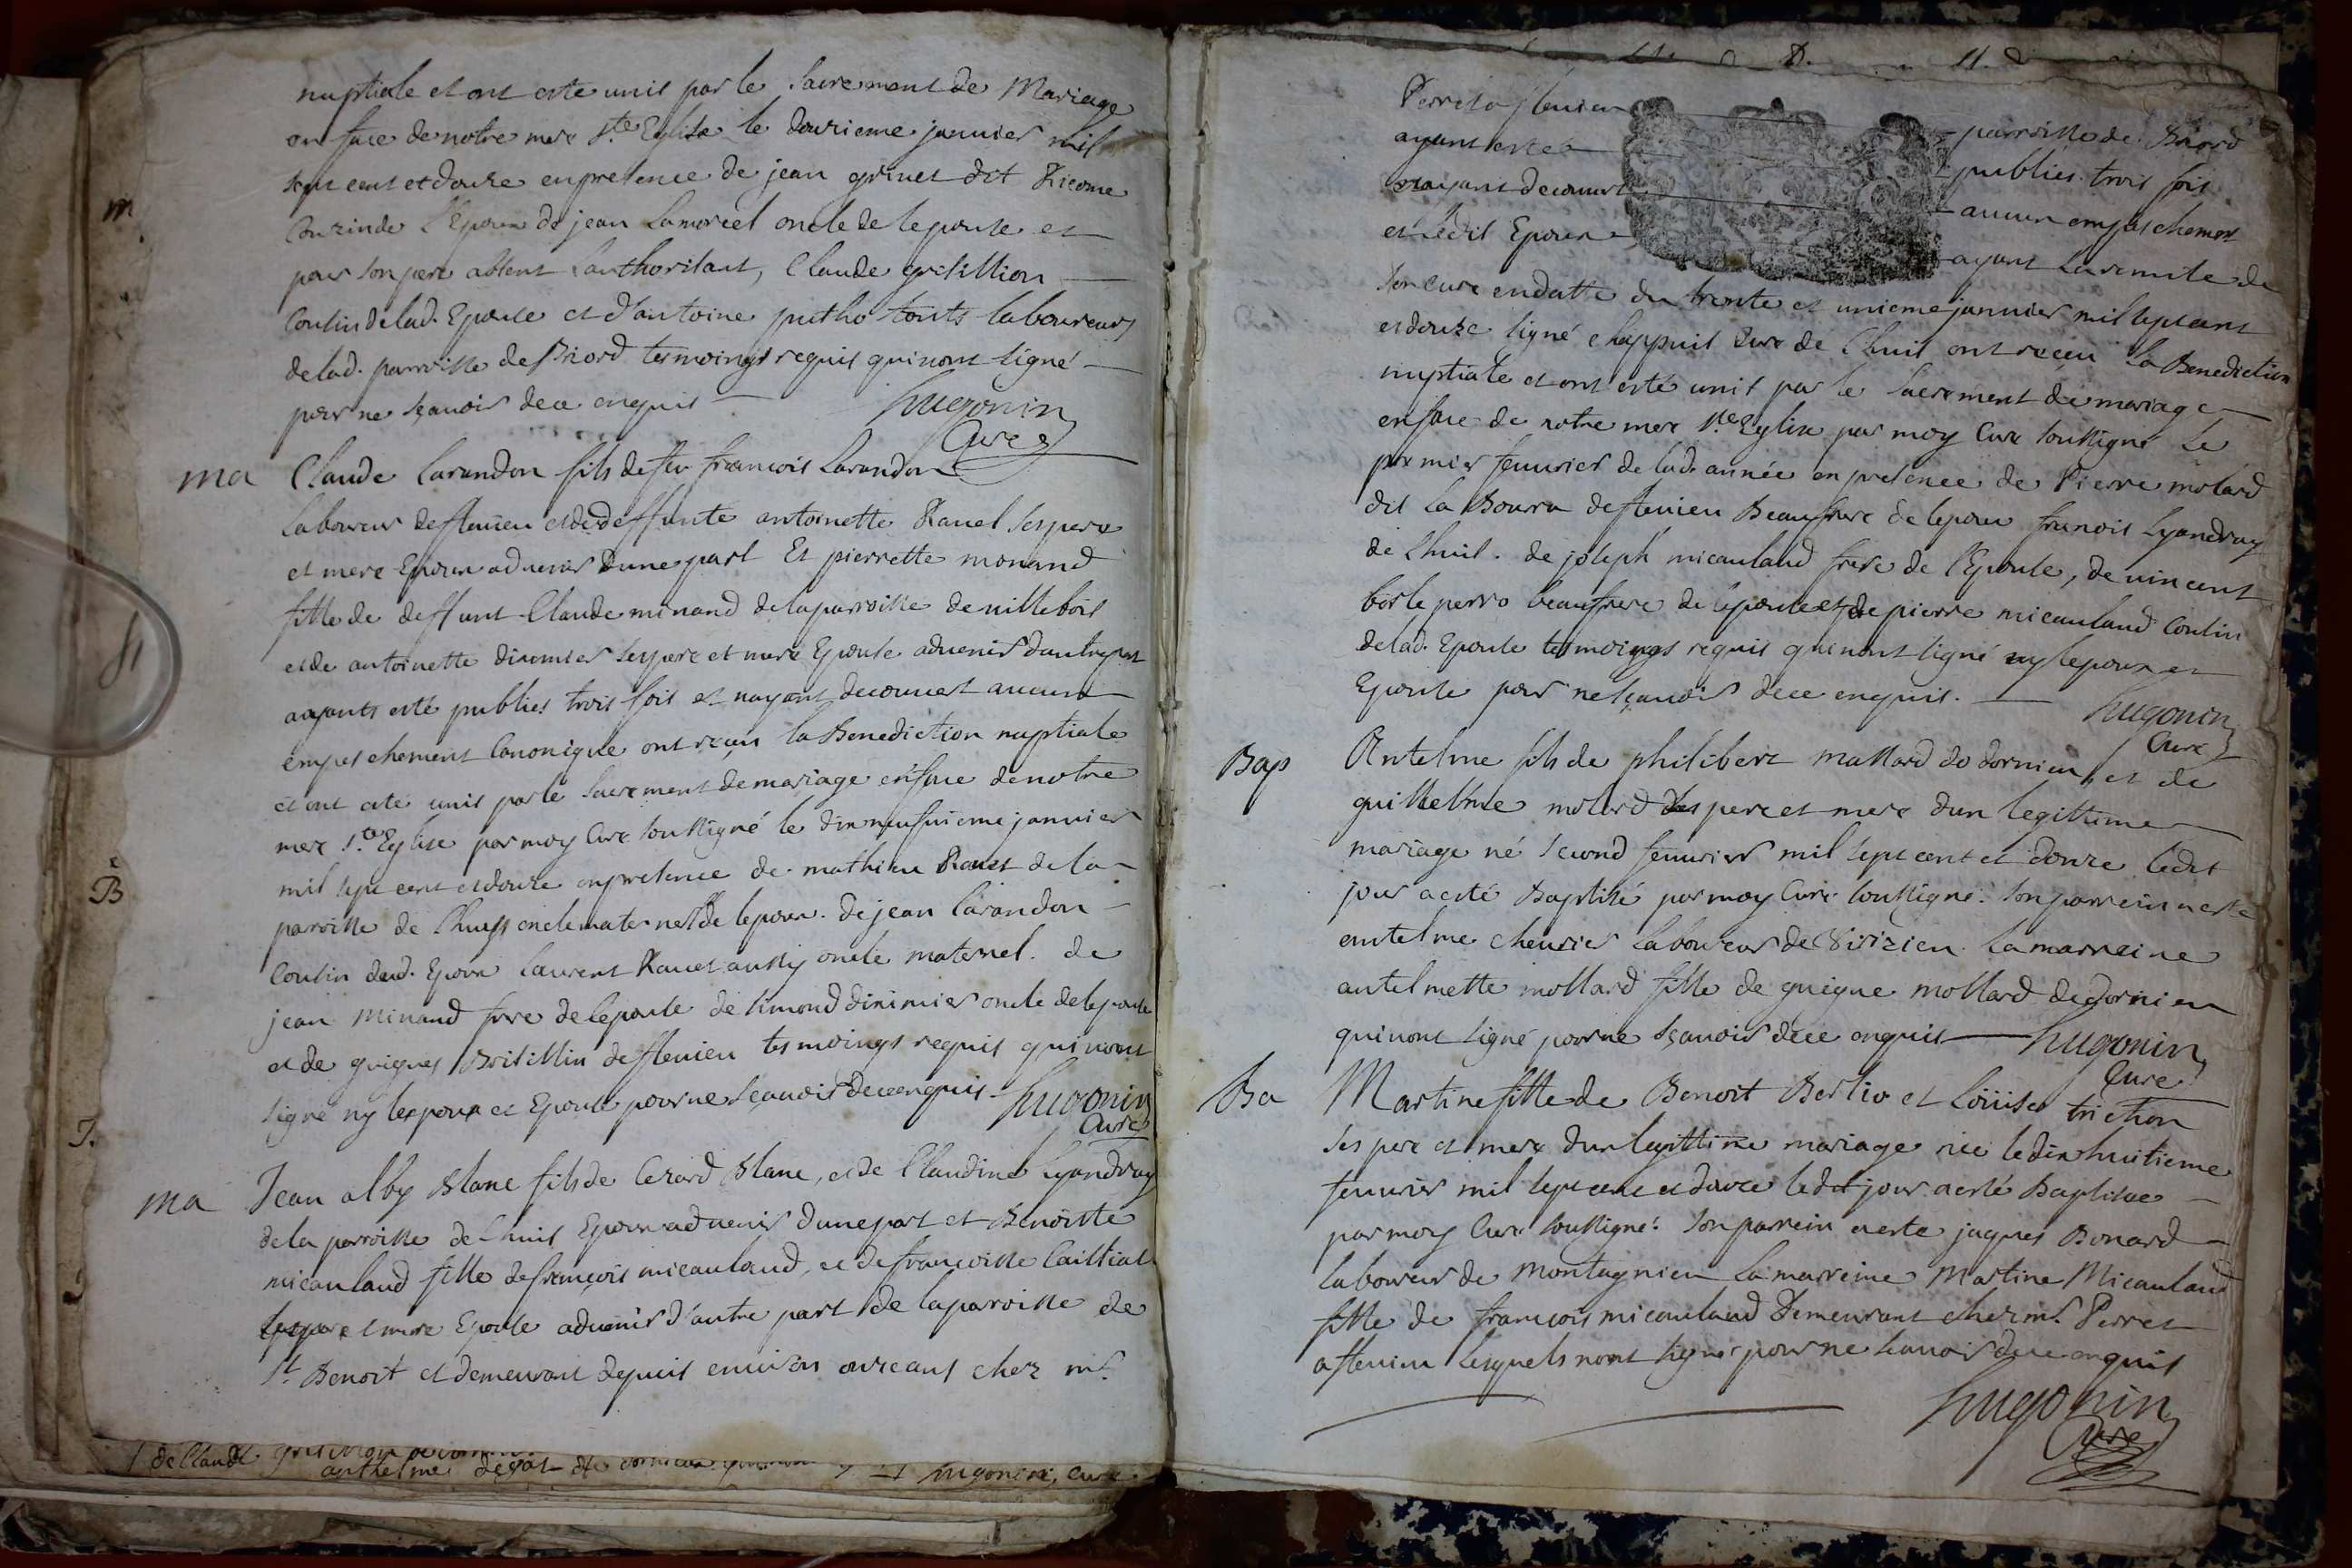 nuptiale et ont esté unis par le Sacrement de Mariage
en face de notre mere Ste Eglise le douzieme januier mil
sept cent et douze en presence de jean grinet dit
Couzin de l'Epoux de jean Lamorcel oncle de lepouse et
pour son pere absent lauthorisant, Claude grelillion
Cousin de lad. Epouse et d'antoine putho touts laboureurs
de lad. parroisse de Briord tesmoings requis qui nont signé
pour ne sçauoir de ce enquis
hugonin
Curé
ma
Claude Carandon fils de feu francois Carandon
laboureur de fleuieu et de deffunte antoinette Rauel ses pere
et mere Epoux aduenir dune part Et pierrette monand
fille de deffunt Claude minand de la parroisse de uillebois
et de antoinette ses pere et mere Epouse aduenir dautre part
ayants esté publies trois fois et nayant decouuert aucun
empeschement Canonique ont reçeu la Benediction nuptiale
et ont esté unis par le Sacrement de mariage en face de notre
mere Ste Eglise par moy Curé soussigné le dix neufuieme januier
mil sept cent et douze en presence de mathieu Rauet de la
parroisse de Lhuis oncle maternel de lepoux. de jean Carandon
Cousin dud. Epoux laurent Rauet aussy oncle maternel. de
jean minand frere de lepouse de simond diximier oncle de lepouse
et de guigues Brisillin de fleuieu tesmoings requis qui nont
signé ny lexpoux et Epouse pour ne sçauoir de ce enquis
hugonin
Curé
ma
Jean alby Blanc fils de Cezard Blanc, et de Claudine Lyandray
de la parroisse de Lhuis Epoux aduenir dune part et Benoiste
micauland fille de françois micauland, et de francoise
ses pere et mere Epouse aduenir d'autre part de la paroisse de
St Benoit et demeurant depuis enuiron onze ans chez mr
de Claude
anthelme hugonin, curé
Perret a fleuieu parroisse de Briord
ayant esté publies trois fois
nayant decouuert aucun empeschement
et Ledit Epoux ayant La remise de
son curé en datte du trente et unieme januier mil sept cent
et douze signé chappuis Curé de Lhuis ont reçeu la Benediction
nuptiale et ont esté unis par le sacrement de mariage
en face de notre mere Ste Eglise par moy Curé soussigné le
premier feurier de lad. année en presence de Pierre molard
dit la Bourra de fleuieu Beaufrere de lepoux francois Lyandray
de Lhuis. de joseph micauland frere de l'Epouse, de uincent
borle perro beaufrere de lepouse et de pierre micauland Cousin
de lad. Epouse tesmoings requis qui nont signé ny lepoux et
Epouse pour ne sçauoir de ce enquis.
hugonin
Curé
Bap
Antelme fils de philibert mallard de dornieu, et de
guillelme molard ses pere et mere dun legittime
mariage né second feurier mil sept cent et douze ledit
jour a esté Baptisé par moy Curé soussigné. son parrein a esté
antelme cheurier laboureur de Virizieu. la marraine
antelmette mollard fille de guigue mollard de dornieu
qui nont signé pour ne sçauoir de ce enquis
hugonin
Curé
Ba
Martine fille de Benoit Berlio et Loüise triction
ses pere et mere dun legittime mariage née le dix huitieme
feurier mil sept cent et douze ledit jour a esté Baptisée
par moy Curé soussigné. son parrein a esté jaques Bonard
laboureur de Montagnieu la marreine Martine Micauland
fille de francois micauland demeurant chez mr. Perret
a fleuieu lesquels nont signé pour ne scauoir de ce enquis
hugonin
Curé